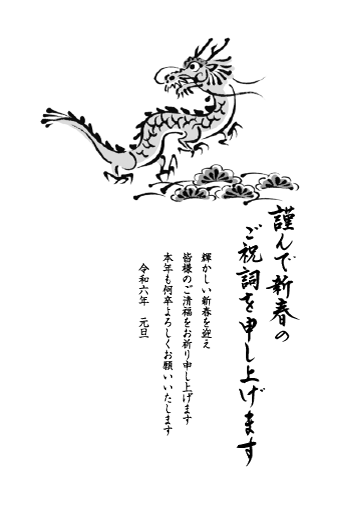 謹んで新春の
ご祝詞を申し上げます
輝かしい新春を迎え
皆様のご清福をお祈り申し上げます
本年も何卒よろしくお願いいたします
令和六年　元旦